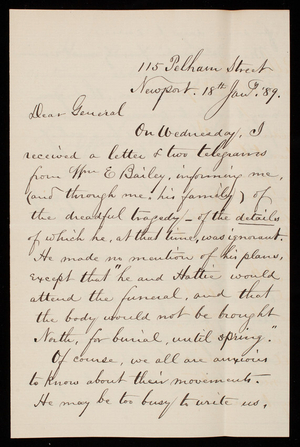 115 Pelham Street
Newport. 18th Jany. '89.
Dear General
On Wednesday, I
received a letter & two telegrams
from Wm E Bailey, informing me,
(and through me, his family) of
the dreadful tragedy - of the details
of which he, at that time, was ignorant.
He made no mention of his plans,
except that "he and Hattie would
attend the funeral, and that
the body would not be brought
North, for burial, until spring."
Of course, we all are anxious
to know about their movements.
He may be too busy to write us.